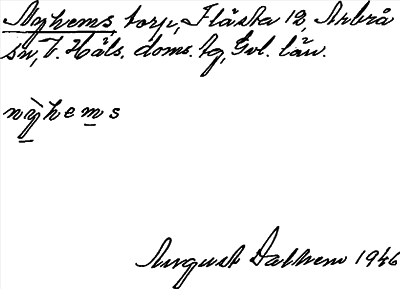 Nyhems torp, Fläska 12, Arbrå
sn, V. Häls. doms. tg, Gvl. län.
nỳhems
August Dalhem 1946